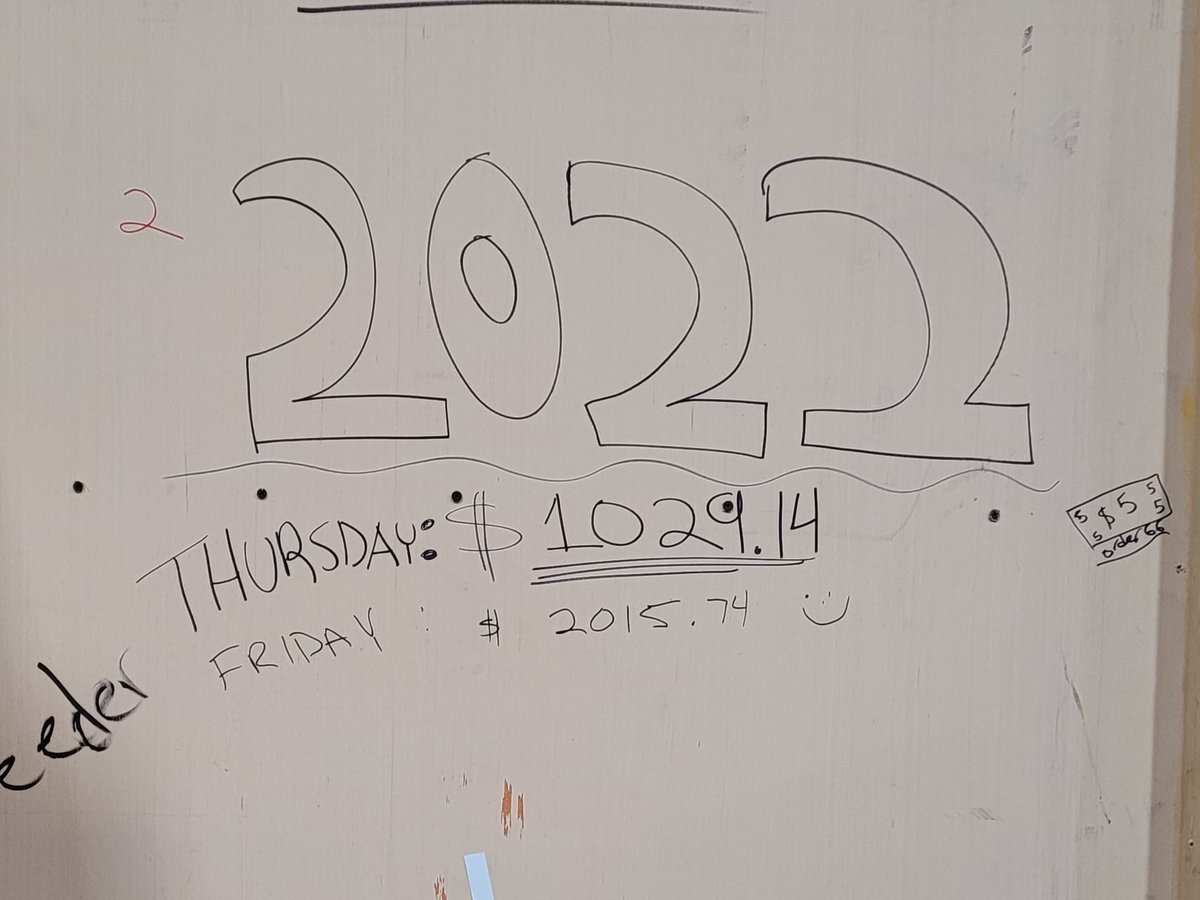 2
2022
THURSDAY: $ 1029.14
FRIDAY : $ 2015.74
5 $5 5
5 5
order 66
eeder